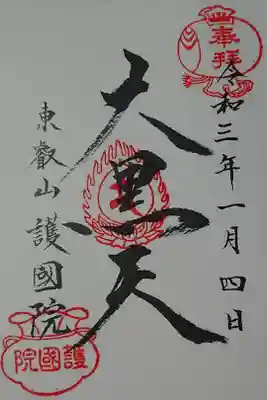 奉拝
令和三年一月四日
大黒天
東叡山護國院
護國院